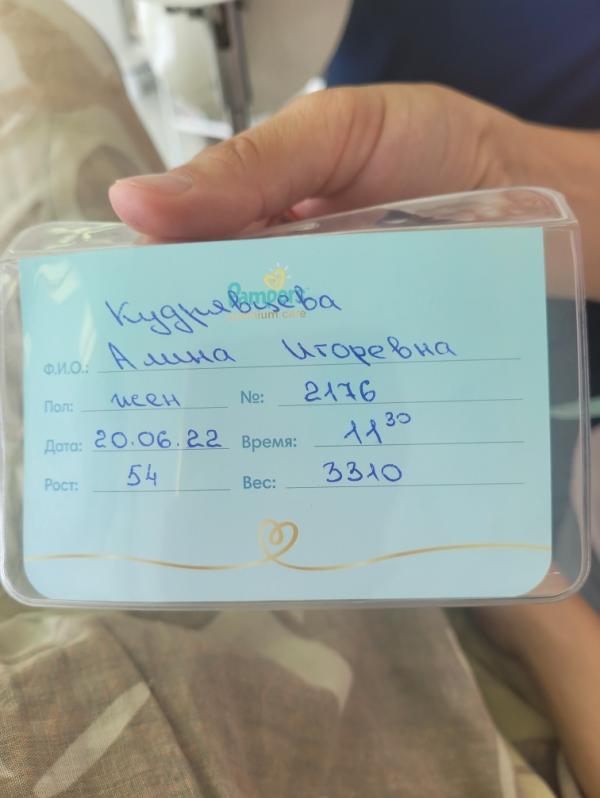 Pampers
premium care
Кудрявцева
Ф.И.О.: Алина Игоревна
Пол: жен №: 2176
Дата: 20.06.22 Время: 11³⁰
Рост: 54 Вес: 3310